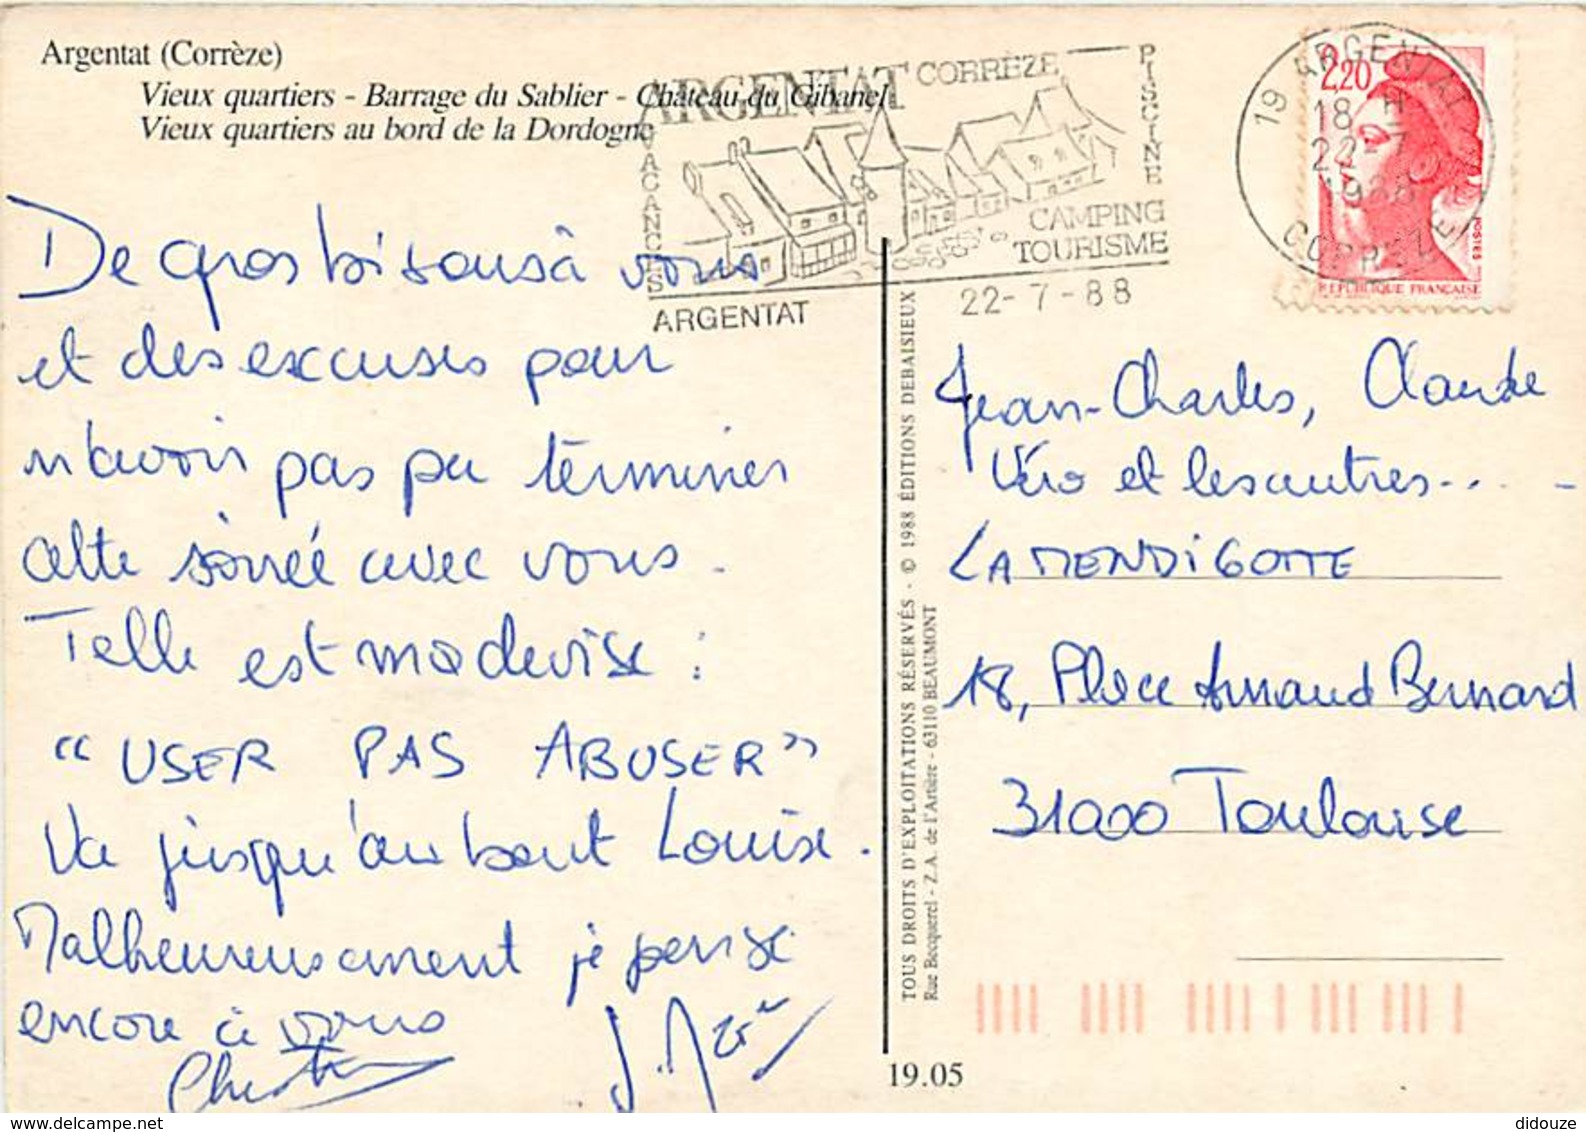 Argentat (Corrèze)
Vieux quartiers - Barrage du Sablier - Château du Gibanel
Vieux quartiers au bord de la Dordogne
ARGENTAT CORRÈZE
VACANCES
PISCINE
CAMPING
TOURISME
ARGENTAT
22-7-88
19 ARGENTAT
18 H
22-7
1988
CORREZE
2,20
POSTES
REPUBLIQUE FRANÇAISE
De gros bisous à vous
et des excuses pour
n'avoir pas pu terminer
cette soirée avec vous.
Telle est ma devise :
"USER PAS ABUSER"
Va jusqu'au bout Louise.
Malheureusement je pense
encore à vous
TOUS DROITS D'EXPLOITATIONS RÉSERVÉS - © 1988 ÉDITIONS DEBAISIEUX
Rue Becquerel - Z.A. de l'Artière - 63110 BEAUMONT
Jean-Charles, Claude
Véro et les autres....-
LA MENDIGOTTE
18, Place Arnaud Bernard
31000 Toulouse
19.05
delcampe.net
didouze